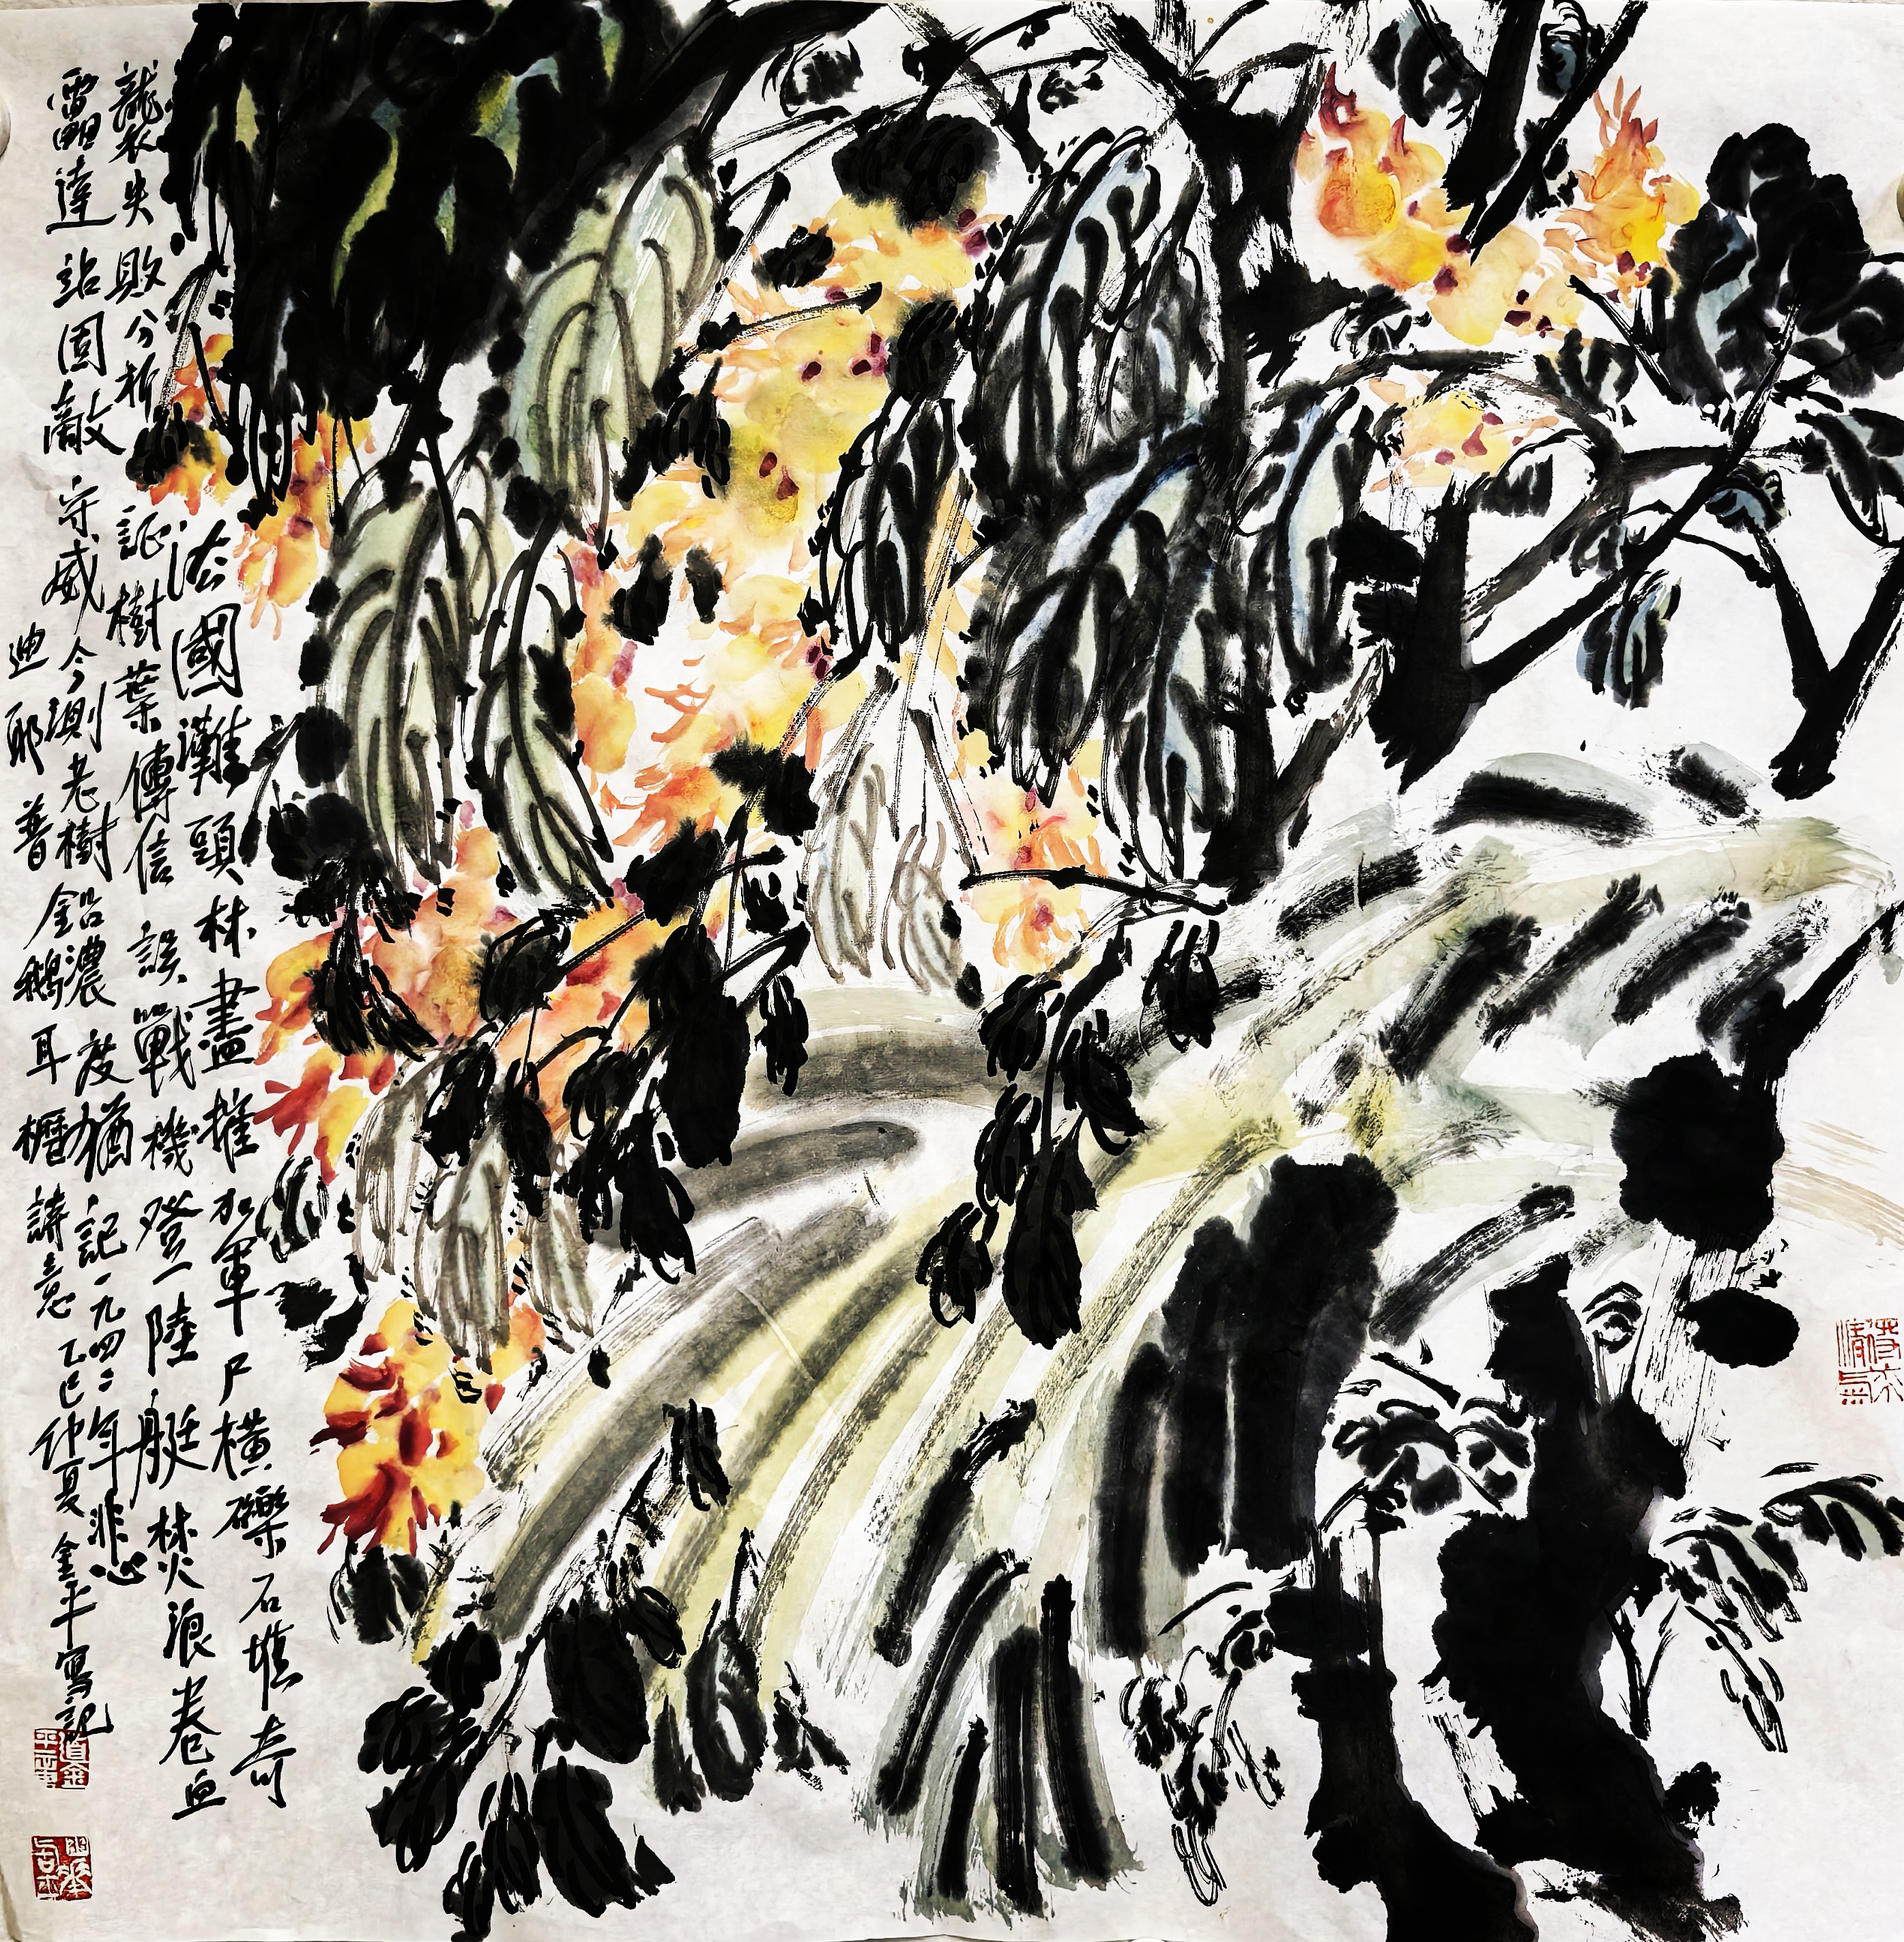 法國灘頭林盡摧加軍尸橫礫石堆奇
襲失敗分析証樹葉傳信誤戰機登陸艇焚浪卷血
雷達站固敵守威今測老樹鉛濃度猶記一九四二年悲
迪耶普鵝耳櫪詩意乙巳仲夏金平寫記